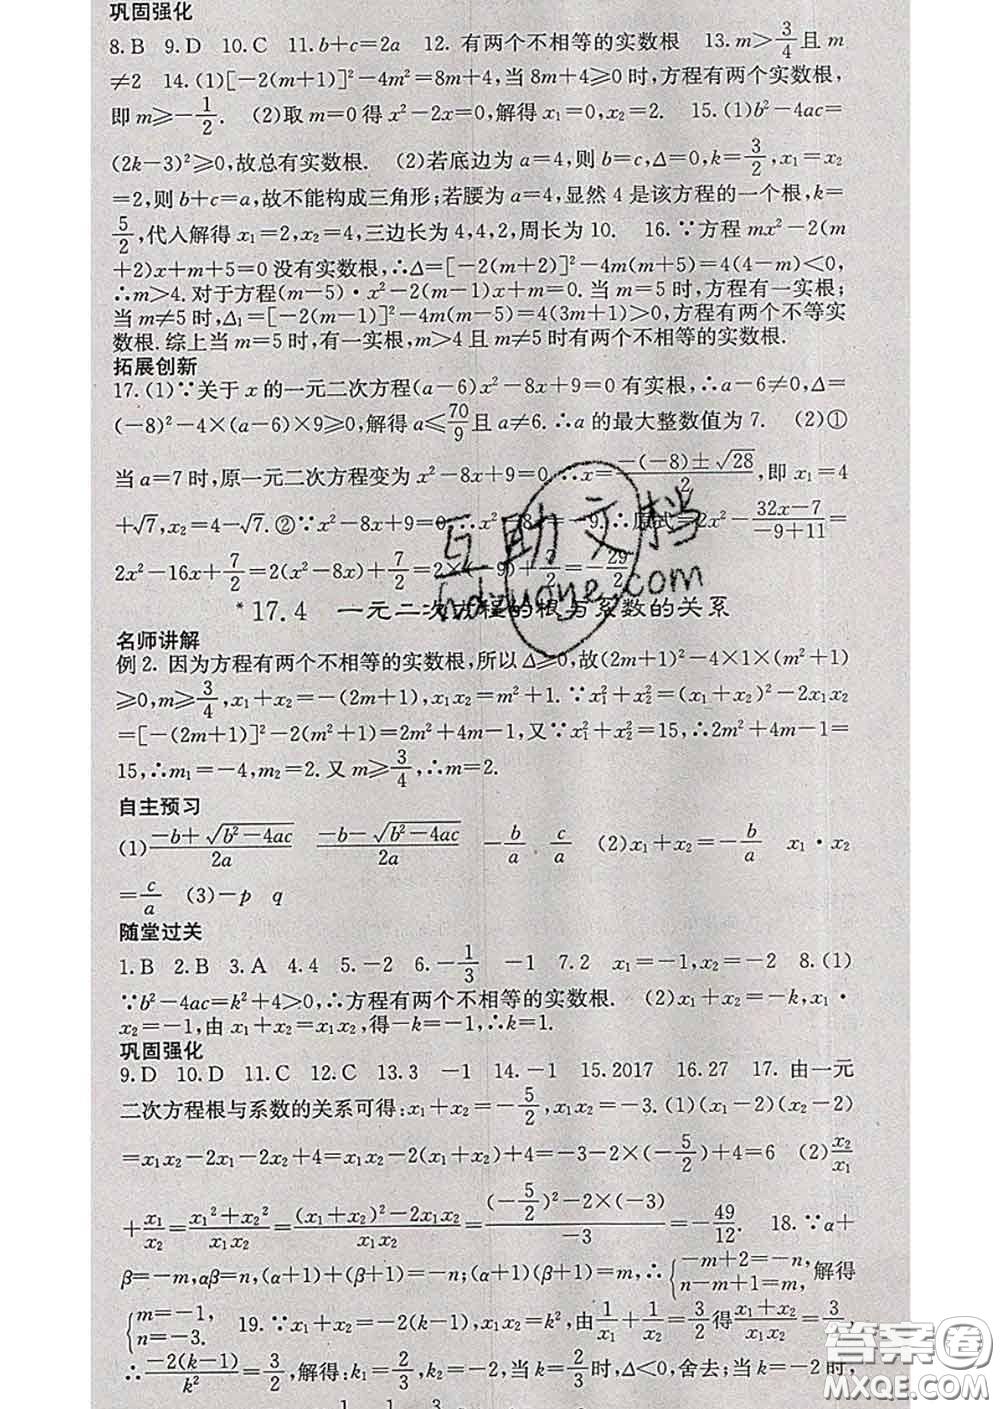 巩固强化
8.B 9.D 10.C 11.b+c=2a 12. 有两个不相等的实数根 13.m>3/4且m
≠2 14.(1)[-2(m+1)]²-4m²=8m+4,当8m+4≥0时,方程有两个实数根,
即m≥-1/2. (2)取m=0得x²-2x=0,解得x₁=0,x₂=2. 15.(1)b²-4ac=
(2k-3)²≥0,故总有实数根. (2)若底边为a=4,则b=c,Δ=0,k=3/2,x₁=x₂
=2,则b+c=a,故不能构成三角形;若腰为a=4,显然4是该方程的一个根,k=
5/2,代入解得x₁=2,x₂=4,三边长为4,4,2,周长为10. 16.∵方程mx²-2(m
+2)x+m+5=0没有实数根,∴Δ=[-2(m+2)]²-4m(m+5)=4(4-m)<0,
∴m>4.对于方程(m-5)·x²-2(m-1)x+m=0.当m=5时,方程有一实根;
当m≠5时,Δ₁=[-2(m-1)]²-4m(m-5)=4(3m+1)>0,方程有两个不等实
数根.综上当m=5时,有一实根,m>4且m≠5时有两个不相等的实数根.
拓展创新
17.(1)∵关于x的一元二次方程(a-6)x²-8x+9=0有实根,∴a-6≠0,Δ=
(-8)²-4×(a-6)×9≥0,解得a≤70/9且a≠6.∴a的最大整数值为7. (2)①
当a=7时,原一元二次方程变为x²-8x+9=0,∴x=(-(-8)±√28)/2,即x₁=4
+√7,x₂=4-√7.②∵x²-8x+9=0,∴x²-8x=-9,∴原式=2x²-(32x-7)/(-9+11)=
2x²-16x+7/2=2(x²-8x)+7/2=2×(-9)+7/2=-29/2.
*17.4 一元二次方程的根与系数的关系
名师讲解
例2. 因为方程有两个不相等的实数根,所以Δ≥0,故(2m+1)²-4×1×(m²+1)
≥0,m≥3/4,x₁+x₂=-(2m+1),x₁x₂=m²+1.∵x₁²+x₂²=(x₁+x₂)²-2x₁x₂
=[-(2m+1)]²-2(m²+1)=2m²+4m-1,又∵x₁²+x₂²=15,∴2m²+4m-1=
15,∴m₁=-4,m₂=2.又m≥3/4,∴m=2.
自主预习
(1)(-b+√(b²-4ac))/2a (-b-√(b²-4ac))/2a -b/a c/a (2)x₁+x₂=-b/a x₁·x₂
=c/a (3)-p q
随堂过关
1.B 2.B 3.A 4.4 5.-2 6.-1/3 -1 7.2 x₁=-1,x₂=-2 8.(1)
∵b²-4ac=k²+4>0,∴方程有两个不相等的实数根. (2)x₁+x₂=-k,x₁·
x₂=-1,由x₁+x₂=x₁x₂,得-k=-1,∴k=1.
巩固强化
9.D 10.D 11.C 12.C 13.3 -1 14.-1 15.2017 16.27 17. 由一元
二次方程根与系数的关系可得:x₁+x₂=-5/2,x₁x₂=-3.(1)(x₁-2)(x₂-2)
=x₁x₂-2x₁-2x₂+4=x₁x₂-2(x₁+x₂)+4=-3-2×(-5/2)+4=6 (2)x₂/x₁
+x₁/x₂=(x₁²+x₂²)/x₁x₂=((x₁+x₂)²-2x₁x₂)/x₁x₂=((-5/2)²-2×(-3))/-3=-49/12. 18.∵α+
β=-m,αβ=n,(α+1)+(β+1)=-n;(α+1)(β+1)=m,∴{-m+2=-n, n-m+1=m,解得
{m=-1, n=-3. 19.∵x₁+x₂=-2(k-1),x₁x₂=k²,由1/x₁+1/x₂=3/2得(x₁+x₂)/x₁x₂=3/2,
∴-2(k-1)/k²=3/2,解得:k₁=2/3,k₂=-2,当k=2/3时,Δ<0,舍去;当k=-2时,
互助文档
hdzuoye.com
答案圈
MXQE.COM